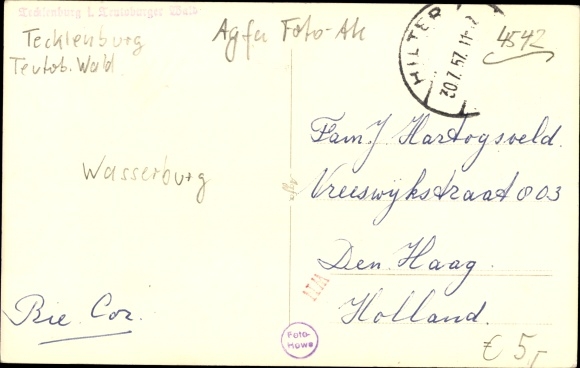 Tecklenburg i. Teutoburger Wald
Tecklenburg
Teutob. Wald
Agfa Foto-Ak
HILTER
30.7.57.11
4542
Wasserburg
Fam. J Hartogsveld.
Vreeswijkstraat 803
Den Haag.
Holland.
Bie. Cor.
Foto-
Howe
€ 5,-